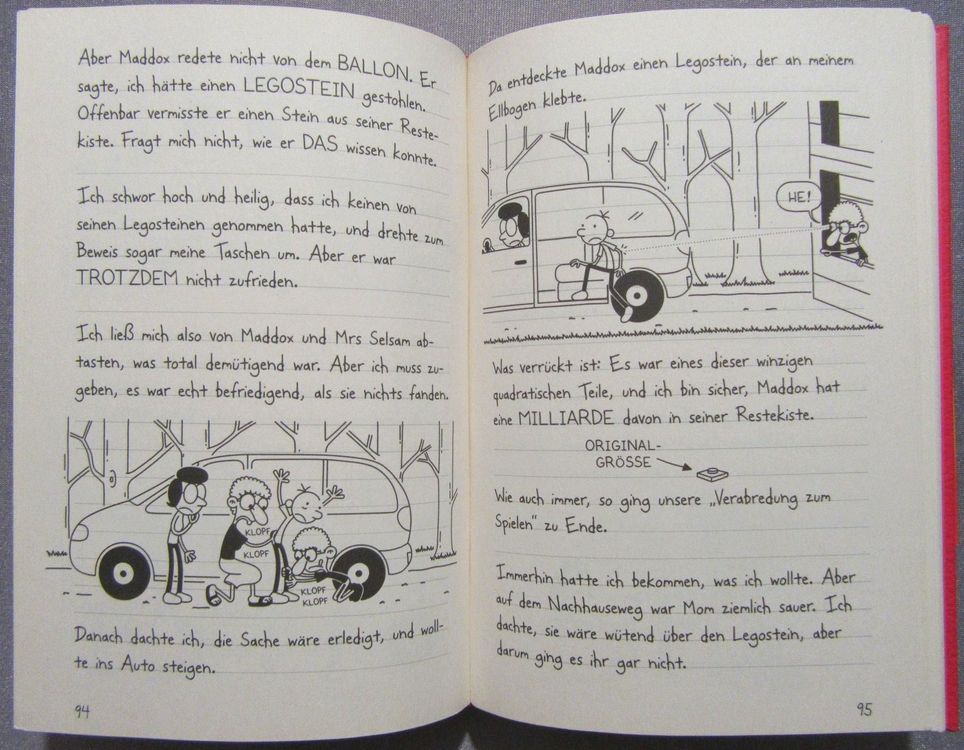 Aber Maddox redete nicht von dem BALLON. Er
sagte, ich hätte einen LEGOSTEIN gestohlen.
Offenbar vermisste er einen Stein aus seiner Reste-
kiste. Fragt mich nicht, wie er DAS wissen konnte.
Ich schwor hoch und heilig, dass ich keinen von
seinen Legosteinen genommen hatte, und drehte zum
Beweis sogar meine Taschen um. Aber er war
TROTZDEM nicht zufrieden.
Ich ließ mich also von Maddox und Mrs Selsam ab-
tasten, was total demütigend war. Aber ich muss zu-
geben, es war echt befriedigend, als sie nichts fanden.
KLOPF
KLOPF
KLOPF
KLOPF
Danach dachte ich, die Sache wäre erledigt, und woll-
te ins Auto steigen.
94
Da entdeckte Maddox einen Legostein, der an meinem
Ellbogen klebte.
HE!
Was verrückt ist: Es war eines dieser winzigen
quadratischen Teile, und ich bin sicher, Maddox hat
eine MILLIARDE davon in seiner Restekiste.
ORIGINAL-
GRÖSSE
Wie auch immer, so ging unsere „Verabredung zum
Spielen" zu Ende.
Immerhin hatte ich bekommen, was ich wollte. Aber
auf dem Nachhauseweg war Mom ziemlich sauer. Ich
dachte, sie wäre wütend über den Legostein, aber
darum ging es ihr gar nicht.
95